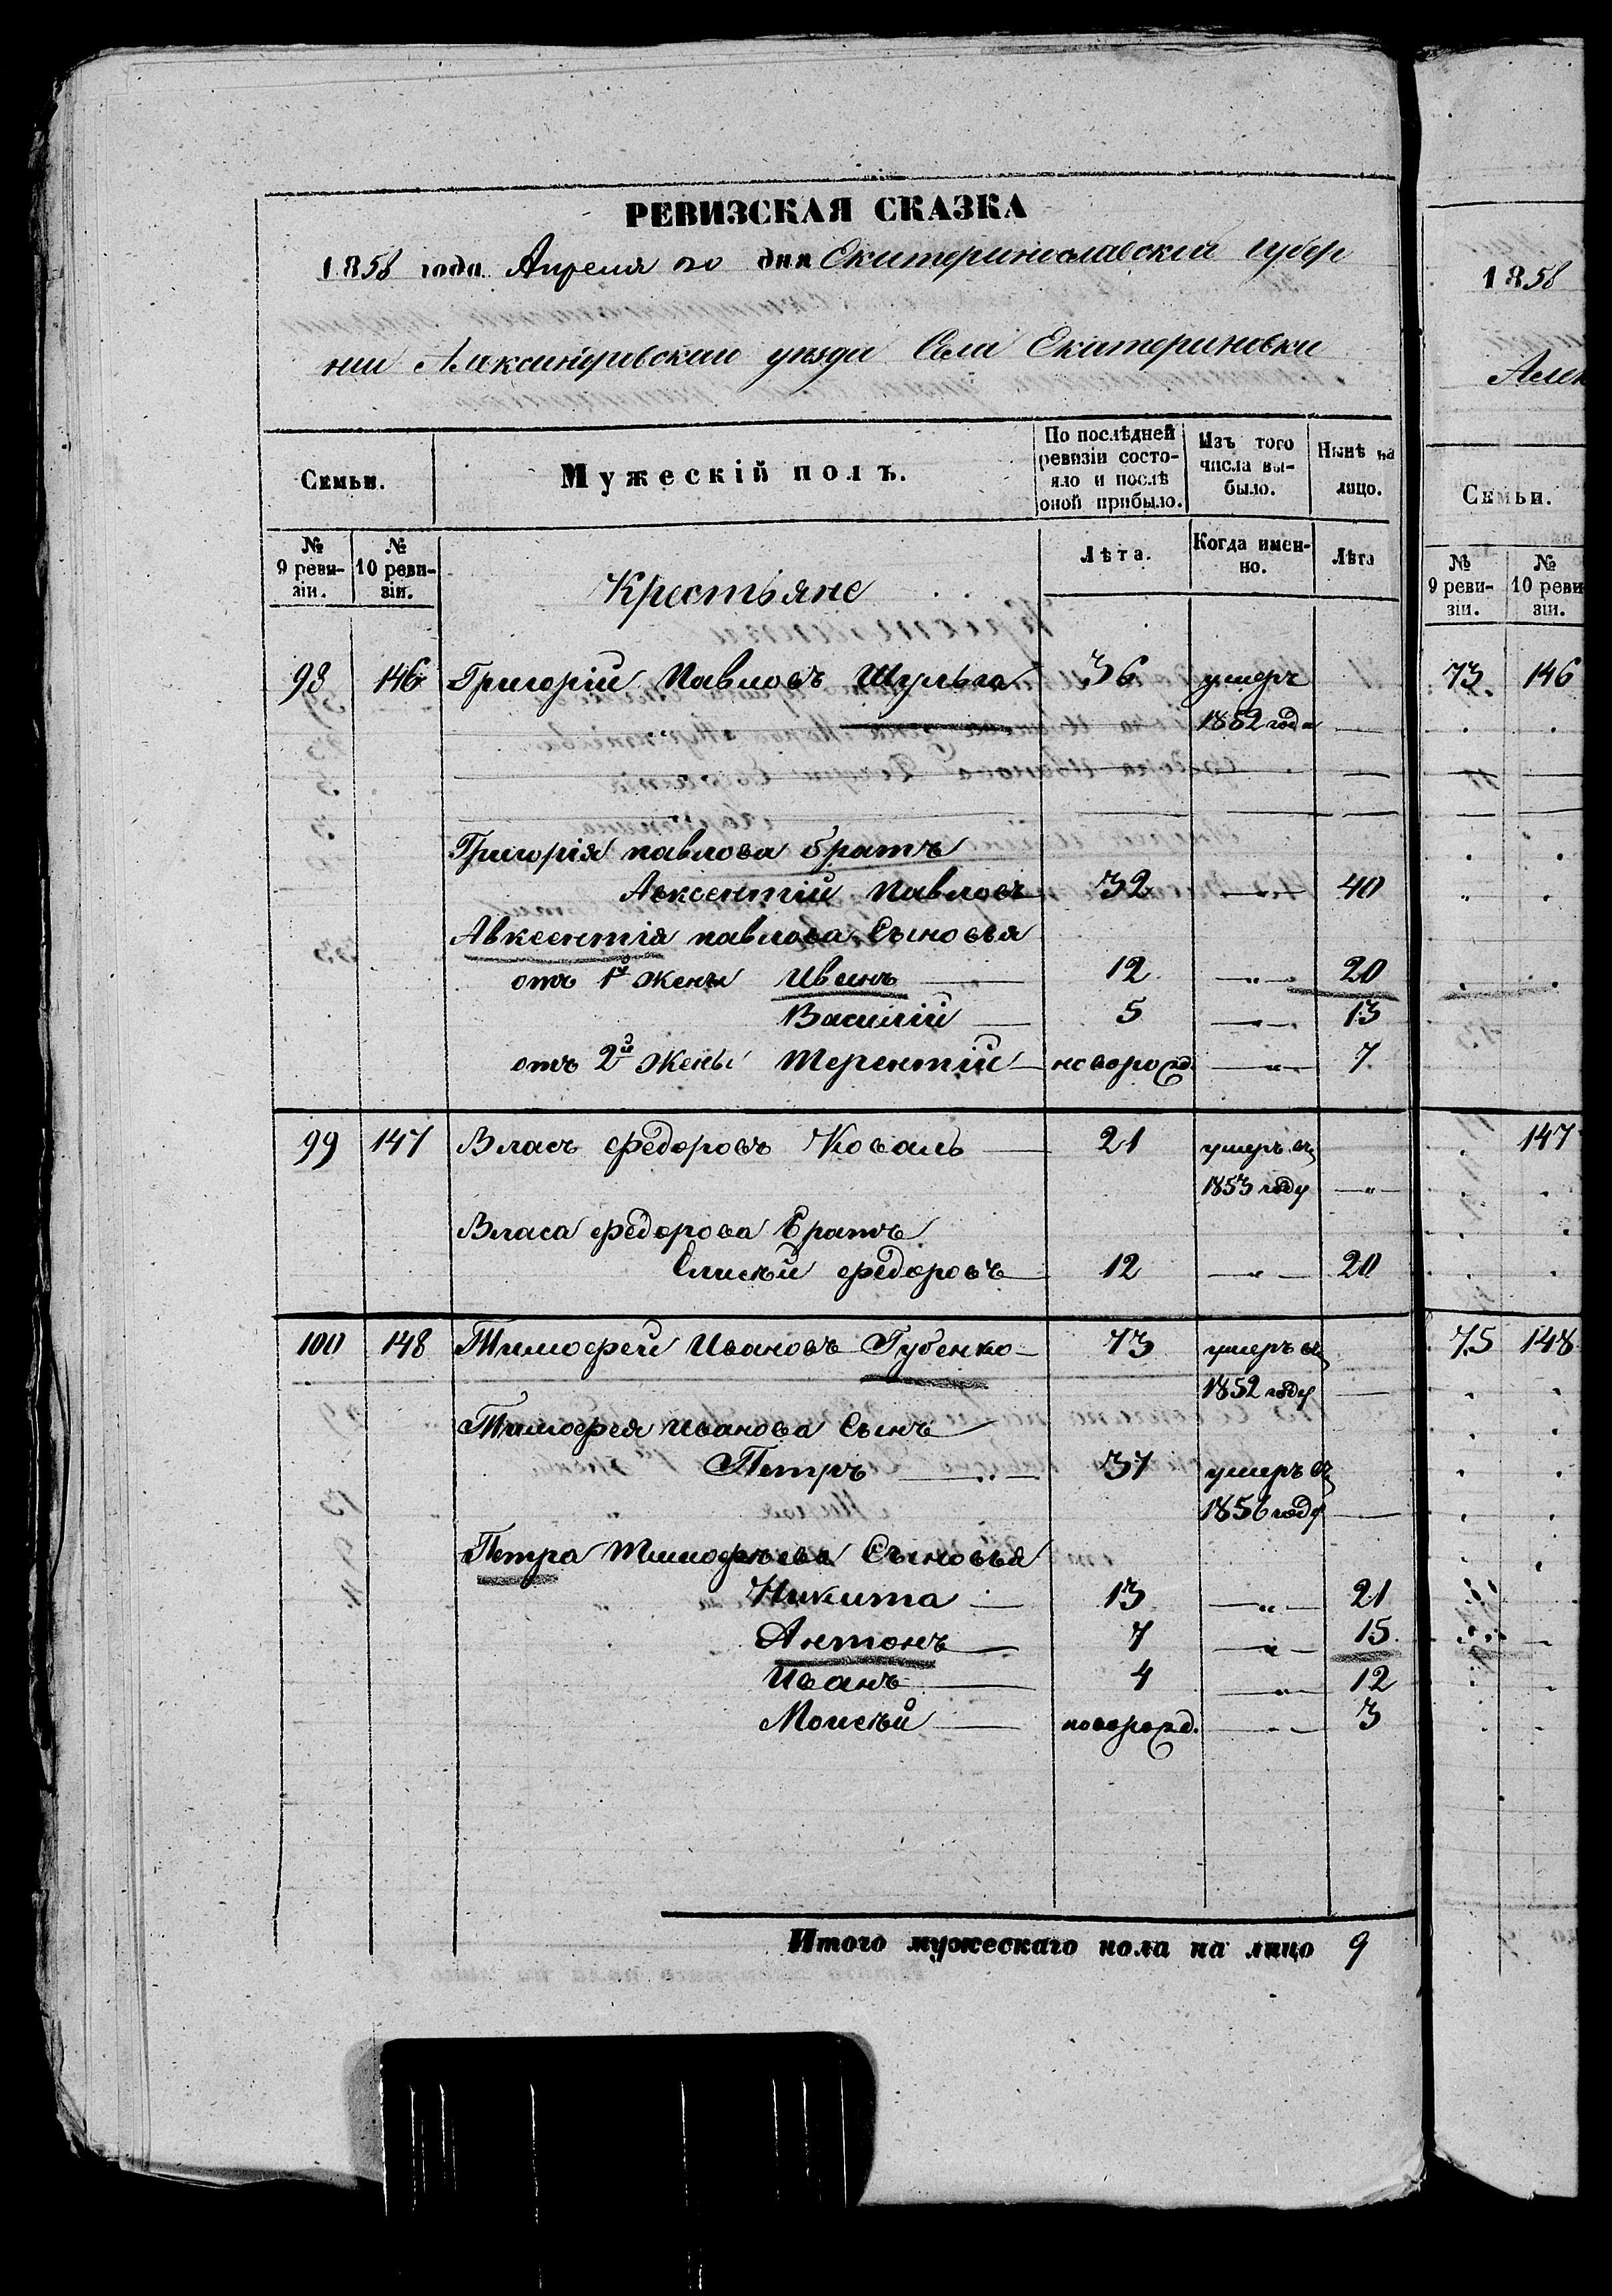 РЕВИЗСКАЯ СКАЗКА
1858 года Апреля 20 дня Екатеринославской губер
нии Александровскаго уезда Села Екатериновки
Семьи.
Мужескій полъ.
По послѣдней ревизіи состояло и послѣ оной прибыло.
Изъ того числа выбыло.
Нынѣ на лицо.
№ 9 ревизіи.
№ 10 ревизіи.
Крестьяне
Лѣта.
Когда именно.
Лѣта
98 146 Григорій Павловъ Шульга 36 умеръ
1852 года
Григорія павлова братъ
Авксентій павловъ 32 " 40
Авксентія павлова Сыновья
отъ 1й жены Иванъ 12 " 20
Василій 5 " 13
отъ 2й жены Терентій новорожд. " 7
99 147 Власъ Федоровъ Коваль 21 умеръ въ
1853 году "
Власа федорова Братъ
Елисѣй федоровъ 12 " 20
100 148 Тимофей Ивановъ Губенко 73 умеръ въ
1852 году
Тимофея Иванова Сынъ
Петръ 37 умеръ въ
1856 году
Петра Тимофѣева Сыновья
Никита 13 " 21
Антонъ 7 " 15
Иванъ 4 " 12
Моисѣй новорожд. " 3
Итого мужескаго пола на лицо 9
1858
Алек
Семьи.
№ 9 ревизіи.
№ 10 реви
зіи.
73 146
147
75 148